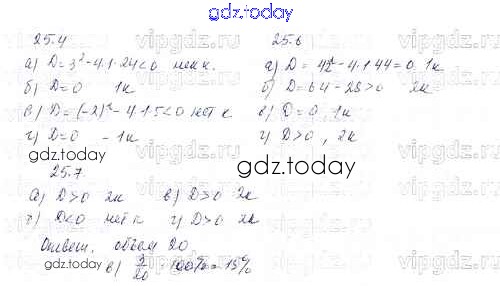 gdz.today
25.4
а) D=3²-4·1·24<0 нет к.
б) D=0 1к
в) D=(-2)²-4·1·5<0 нет к
г) D=0 -1к
gdz.today
25.6
а) D= 4²-4·1·44=0, 1к
б) D=64-28>0 2к
в) D=0, 1к
г) D>0, 2к
gdz.today
25.7
а) D>0 2к в) D>0 2к
б) D<0 нет к г) D>0 2к
Ответ. объем 20
gdz.today
в) 3/20 · 100% = 15%
vipgdz.ru